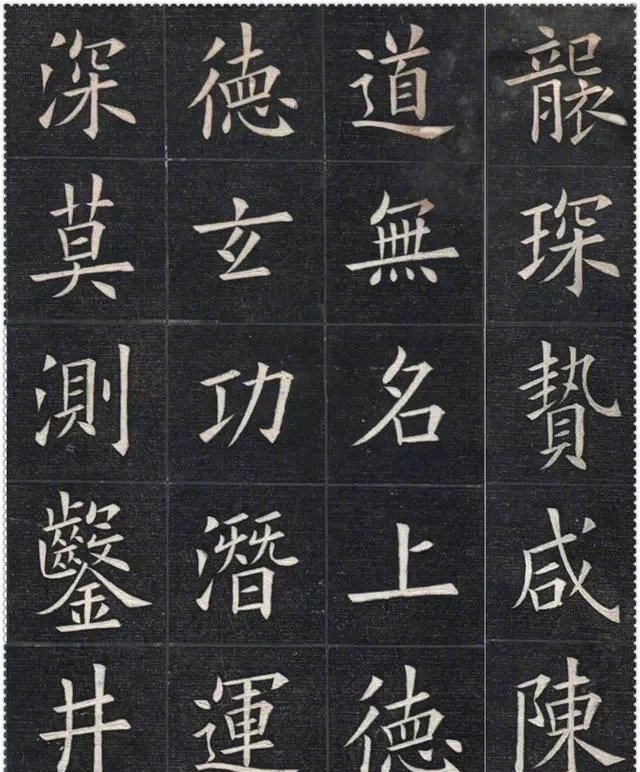 襲琛贄咸陳
道無名上德
德玄功潛運
深莫測鑿井